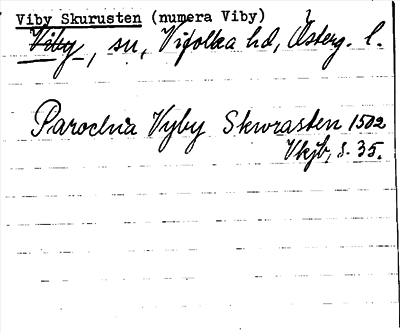 Viby Skurusten (numera Viby)
Viby, sn, Vifolka hd, Österg. l.
Parochia Vyby Skwrasten 1502
Vkjb, s. 35.